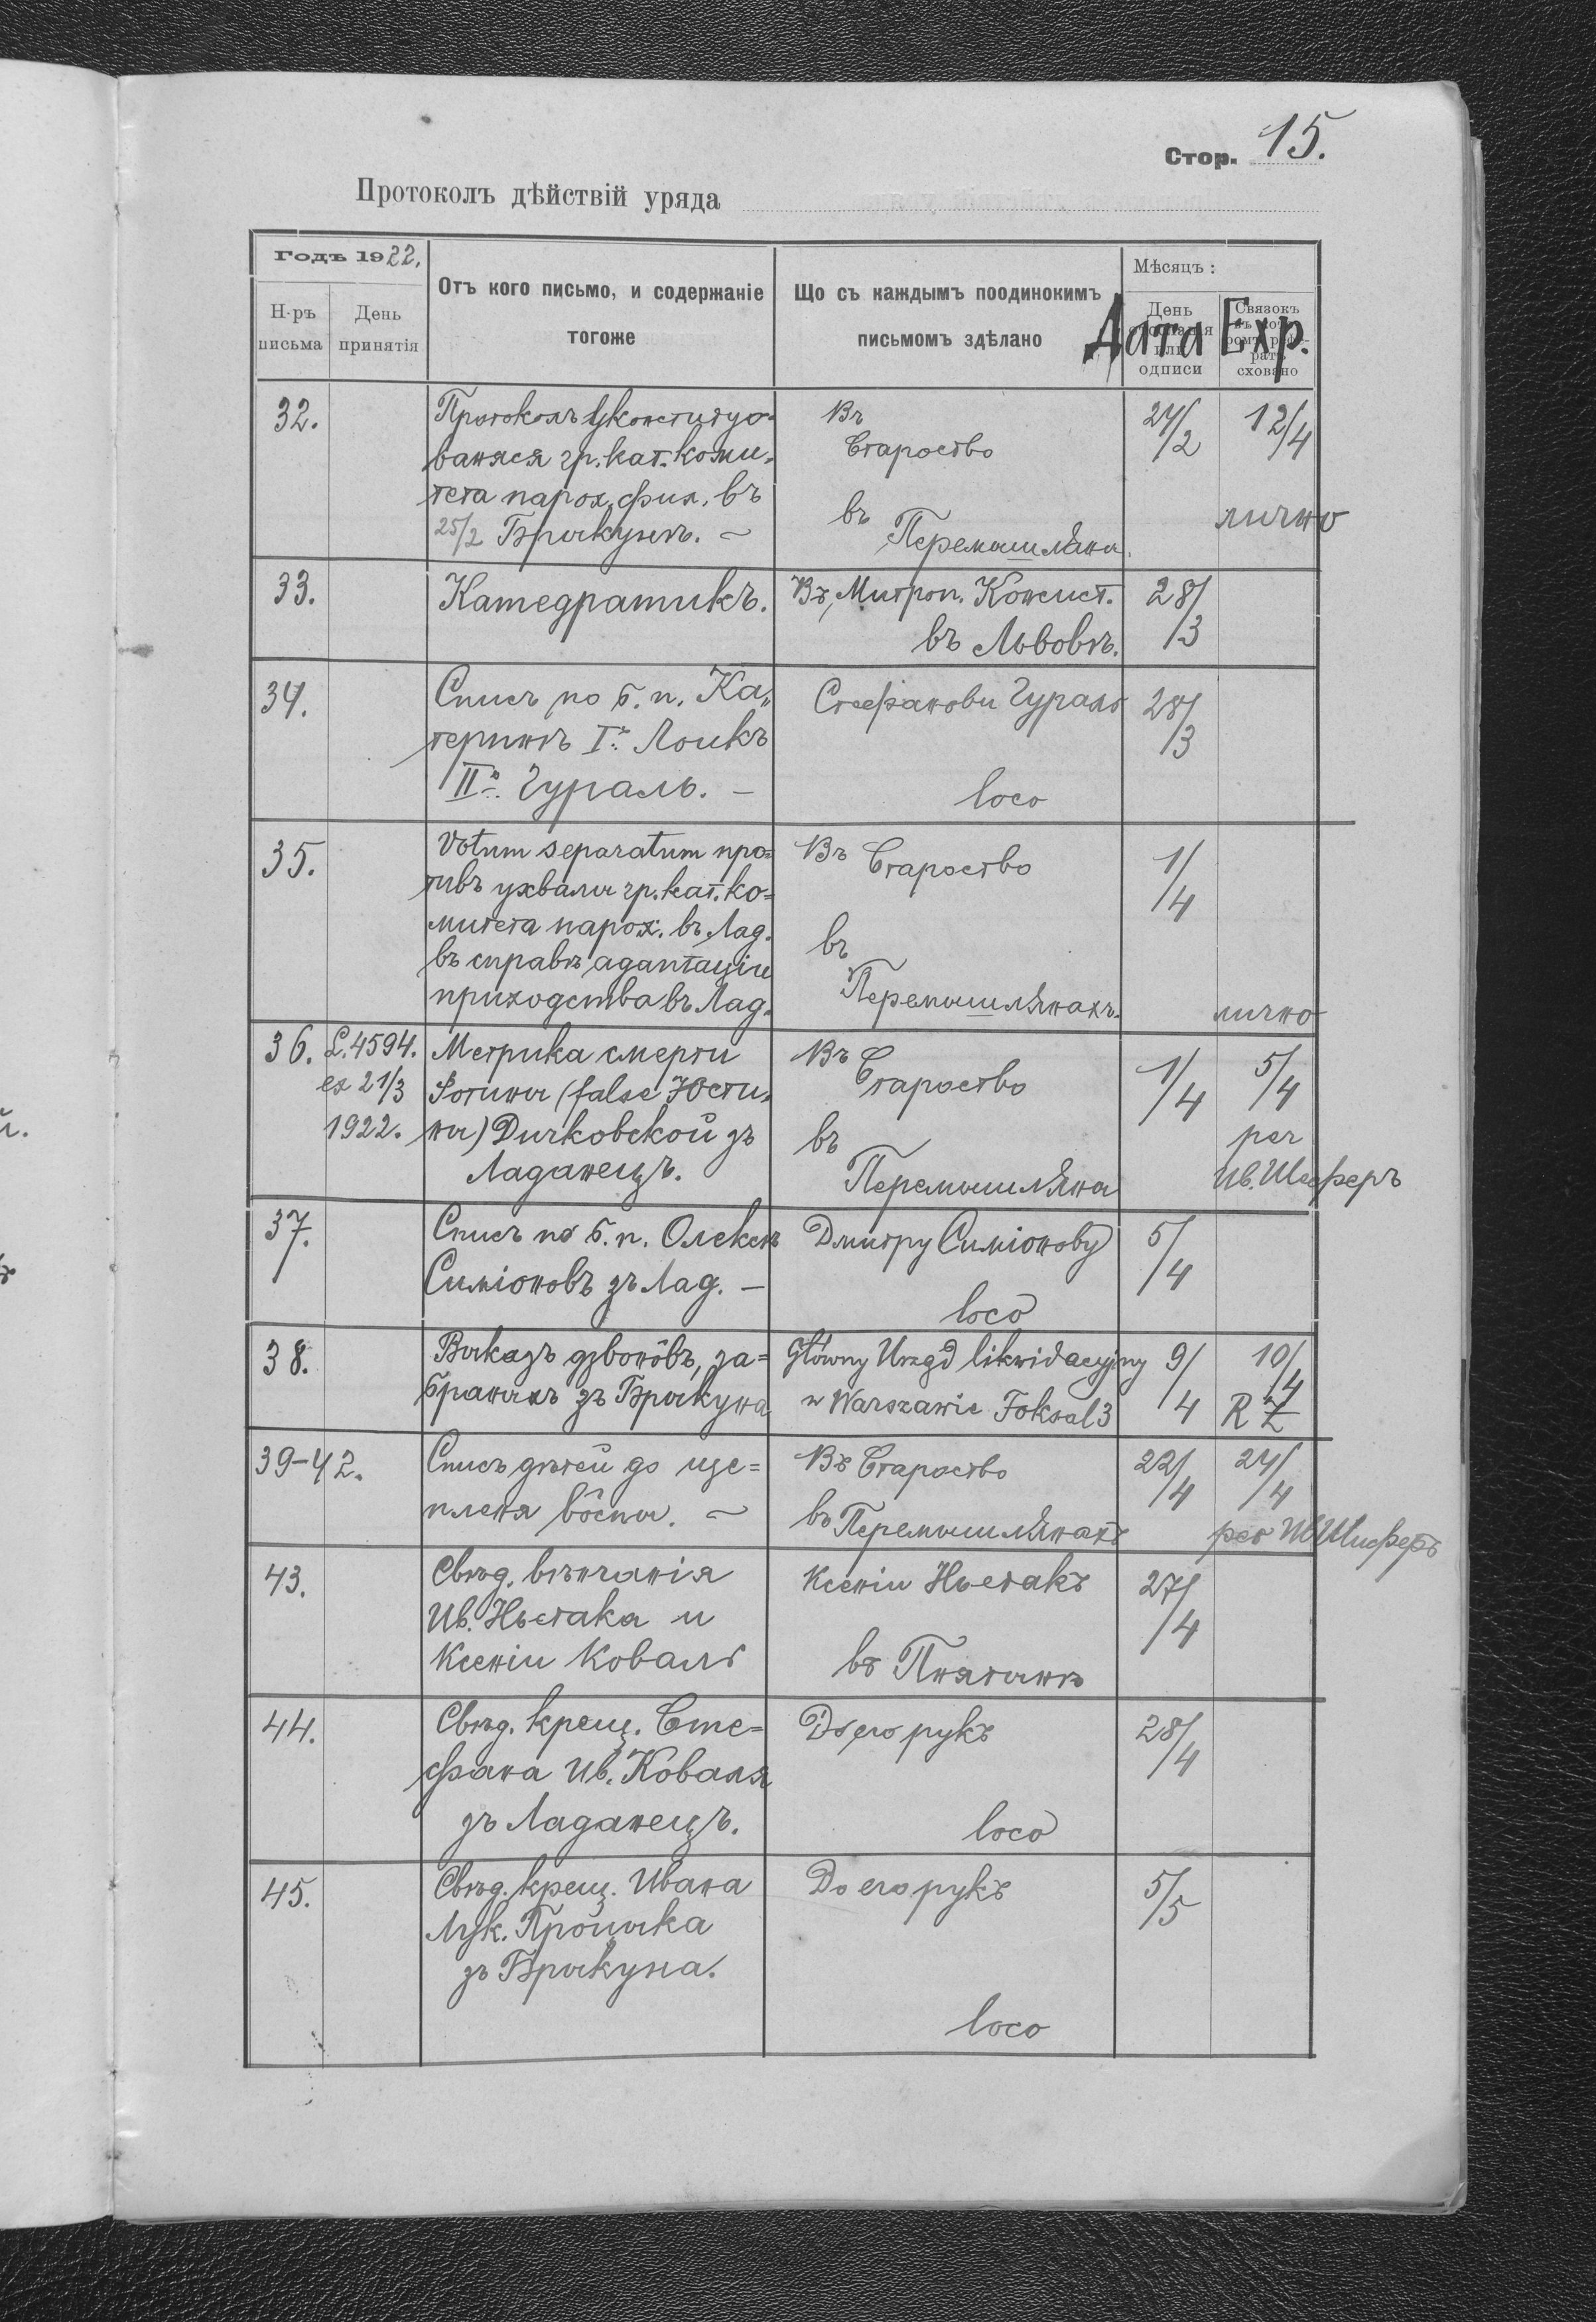 Стор. 15.
Протоколъ дѣйствій уряда
Годъ 1922.
Н-ръ письма
День принятія
Отъ кого письмо, и содержаніе
тогоже
Що съ каждымъ поодинокимъ
письмомъ здѣлано
Мѣсяцъ:
День
одписи
Дата
Связокъ
сховано
Exp.
32.
Протоколъ Уконституо-
ваняся гр. кат. коми-
тета парох. фил. въ
25/2 Брыкунѣ. –
Въ
Староство
въ
Перемышляны.
27/2
12/4
лично
33.
Катедратикъ.
Въ Митроп. Консист.
въ Львовѣ.
28/3
34.
Списъ по б. п. Ка„
теринѣ I° Лоикъ
II° Гураль. –
Стефанови Гураль
loco
28/3
35.
Votum separatum про=
тивъ ухвалы гр. кат. ко=
митета парох. въ Лад.
въ справѣ адаптаціи
приходства въ Лад.
Въ Староство
въ
Перемышлянахъ.
1/4
лично
36.
L. 4594.
ex 21/3
1922.
Метрика смерти
Фотины (false Юсти=
ны) Дичковской зъ
Ладанецъ.
Въ
Староство
въ
Перемышляны
1/4
5/4
per
Ив. Шефферъ
37.
Списъ по б. п. Олексѣ
Симіоновъ зъ Лад. –
Дмитру Симіонову
loco
5/4
38.
Выказъ дзвонôвъ, за=
браныхъ зъ Брыкуна
Główny Urząd likwidacyjny
w Warszawie Foksal 3
9/4
10/4
R
39–42.
Списъ дѣтей до ще=
пленя вôспы. –
Въ Староство
въ Перемышлянахъ
22/4
24/4
per
43.
Свѣд. вѣнчанія
Ив. Нестака и
Ксеніи Коваль
Ксеніи Нестакъ
въ Пнятынѣ
27/4
44.
Свѣд. крещ. Сте=
фана Ив. Коваля
зъ Ладанецъ.
До его рукъ
loco
28/4
45.
Свѣд. крещ. Ивана
Лук. Процыка
зъ Брыкуна.
До его рукъ
loco
5/5